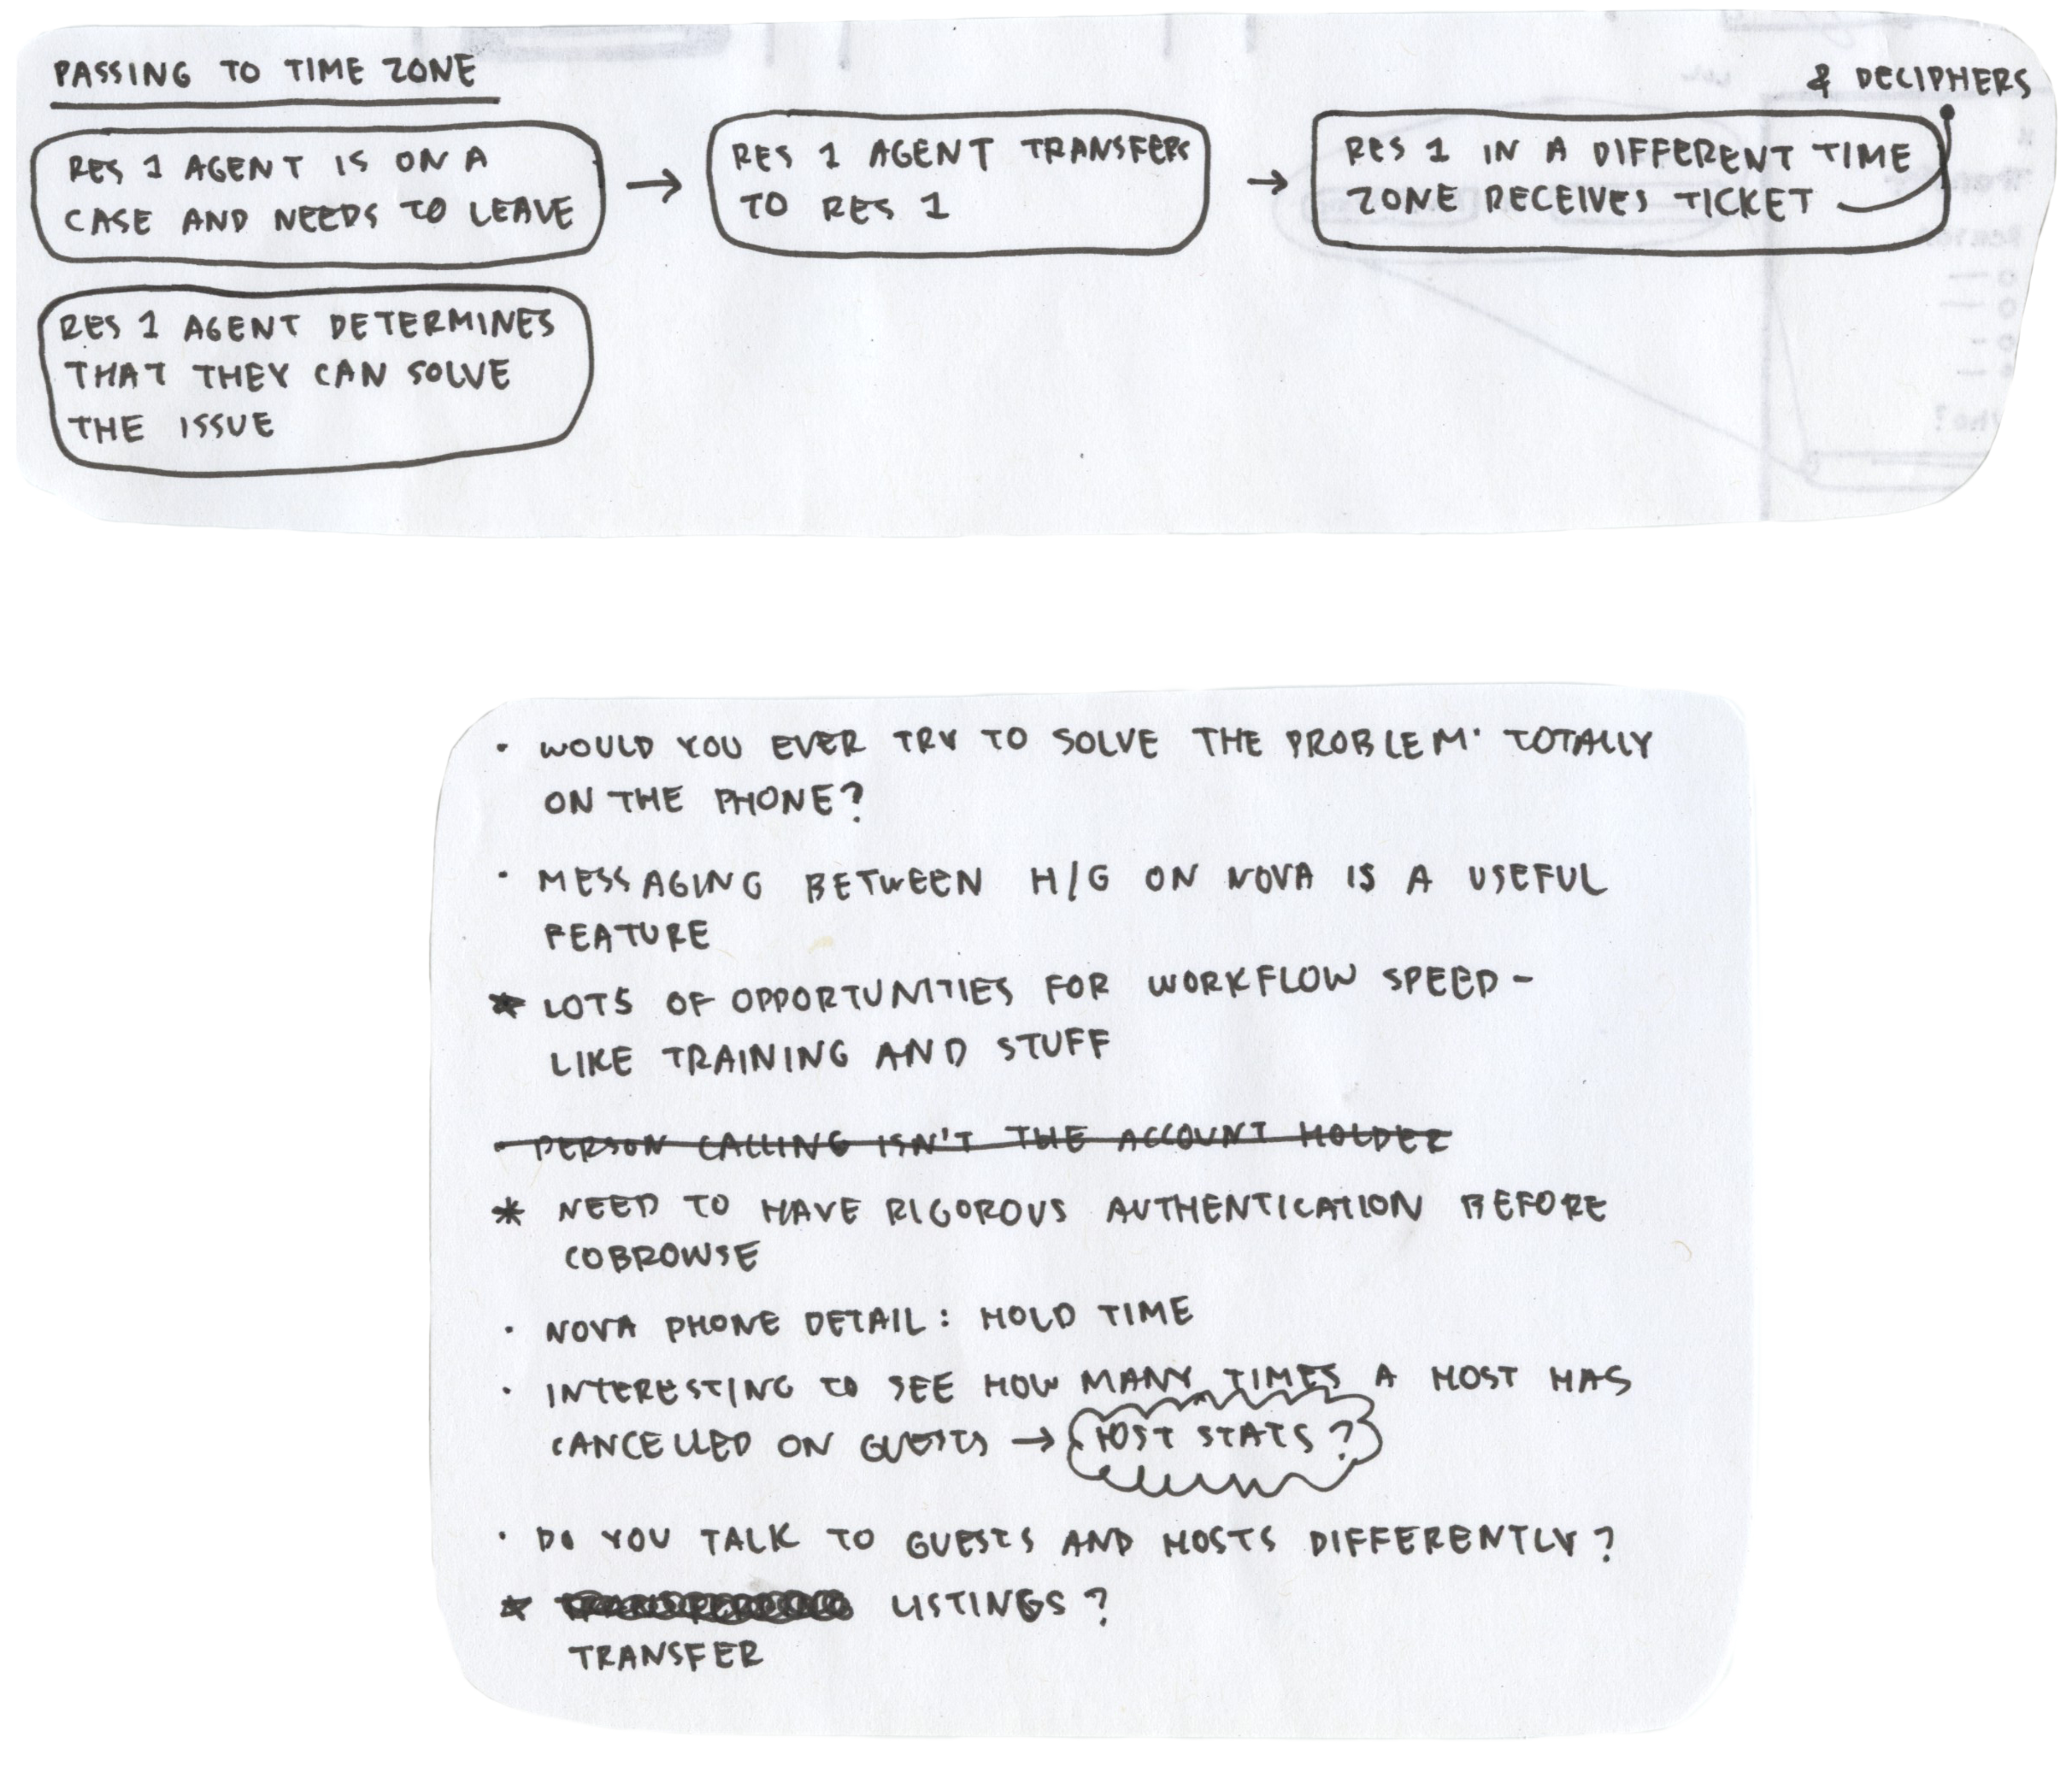 PASSING TO TIME ZONE
RES 1 AGENT IS ON A
CASE AND NEEDS TO LEAVE
→
RES 1 AGENT TRANSFERS
TO RES 1
→
RES 1 IN A DIFFERENT TIME
ZONE RECEIVES TICKET
& DECIPHERS
RES 1 AGENT DETERMINES
THAT THEY CAN SOLVE
THE ISSUE
• WOULD YOU EVER TRY TO SOLVE THE PROBLEM TOTALLY
ON THE PHONE?
• MESSAGING BETWEEN H/G ON NOVA IS A USEFUL
FEATURE
* LOTS OF OPPORTUNITIES FOR WORKFLOW SPEED -
LIKE TRAINING AND STUFF
- PERSON CALLING ISN'T THE ACCOUNT HOLDER
* NEED TO HAVE RIGOROUS AUTHENTICATION BEFORE
COBROWSE
• NOVA PHONE DETAIL: HOLD TIME
• INTERESTING TO SEE HOW MANY TIMES A HOST HAS
CANCELLED ON GUESTS → HOST STATS?
• DO YOU TALK TO GUESTS AND HOSTS DIFFERENTLY?
* LISTINGS?
TRANSFER